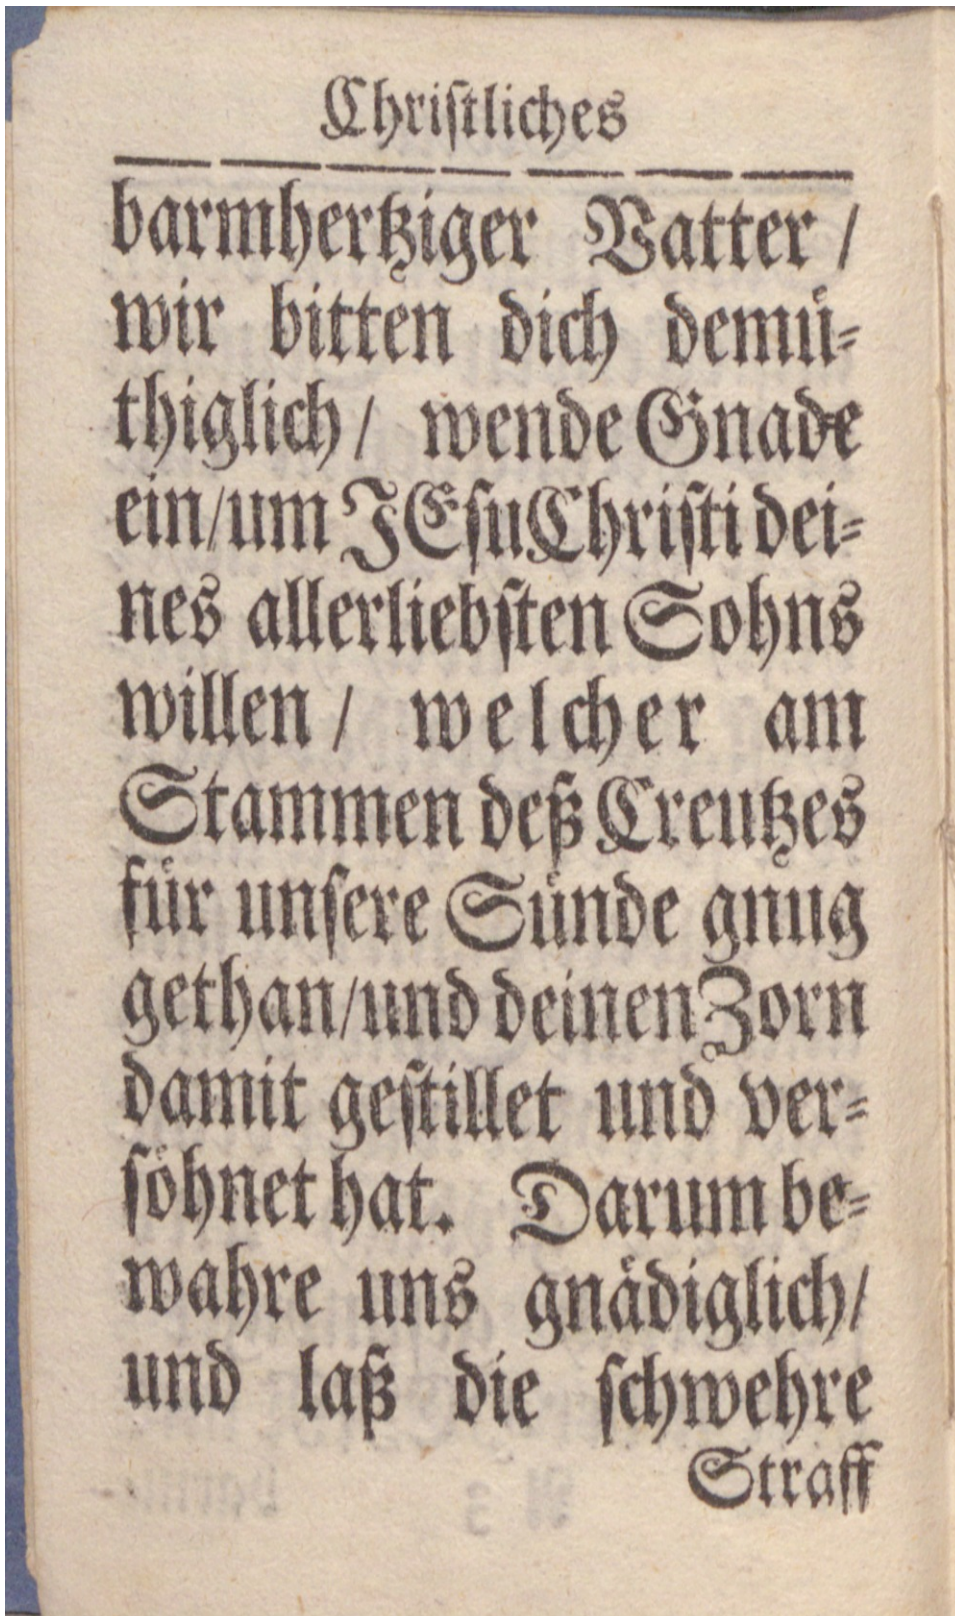 Christliches
barmhertziger Vatter /
wir bitten dich demü-
thiglich / wende Gnade
ein/um JEsu Christi dei-
nes allerliebsten Sohns
willen / welcher am
Stammen deß Creutzes
für unsere Sünde gnug
gethan/und deinen Zorn
damit gestillet und ver-
söhnet hat. Darum be-
wahre uns gnädiglich/
und laß die schwehre
Straff